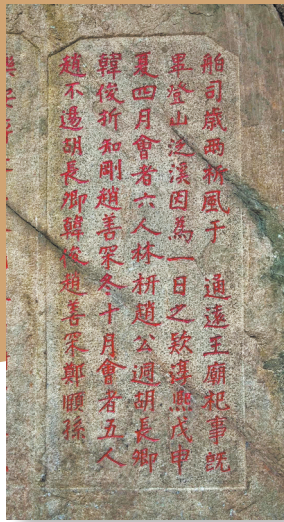 舶司歲兩祈風于 通遠王廟祀事既
畢登山泛溪因為一日之欵淳熙戊申
夏四月會者六人林枅趙公迥胡長卿
韓俊折知剛趙善寀冬十月會者五人
趙不逷胡長卿韓俊趙善寀鄭頤孫